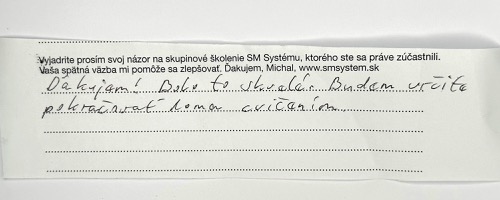 Vyjadrite prosím svoj názor na skupinové školenie SM Systému, ktorého ste sa práve zúčastnili.
Vaša spätná väzba mi pomôže sa zlepšovať. Ďakujem, Michal, www.smsystem.sk
Ďakujem! Bolo to skvelé. Budem určite
pokračovať doma cvičením